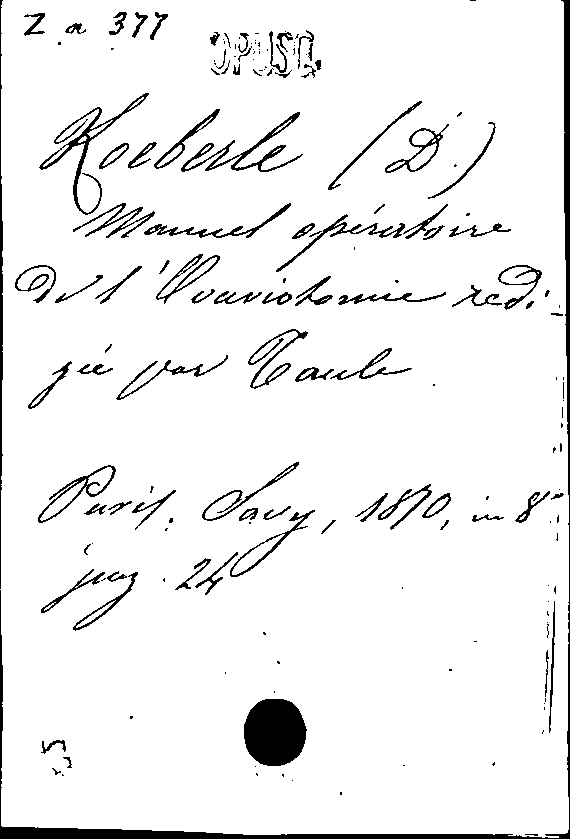 Z a 377
OPUSC.
Koeberle (D.)
Manuel opératoire
De l'Ovariotomie redi-
gée par Taule
Paris. Savy, 1870, in 8°
pag. 24